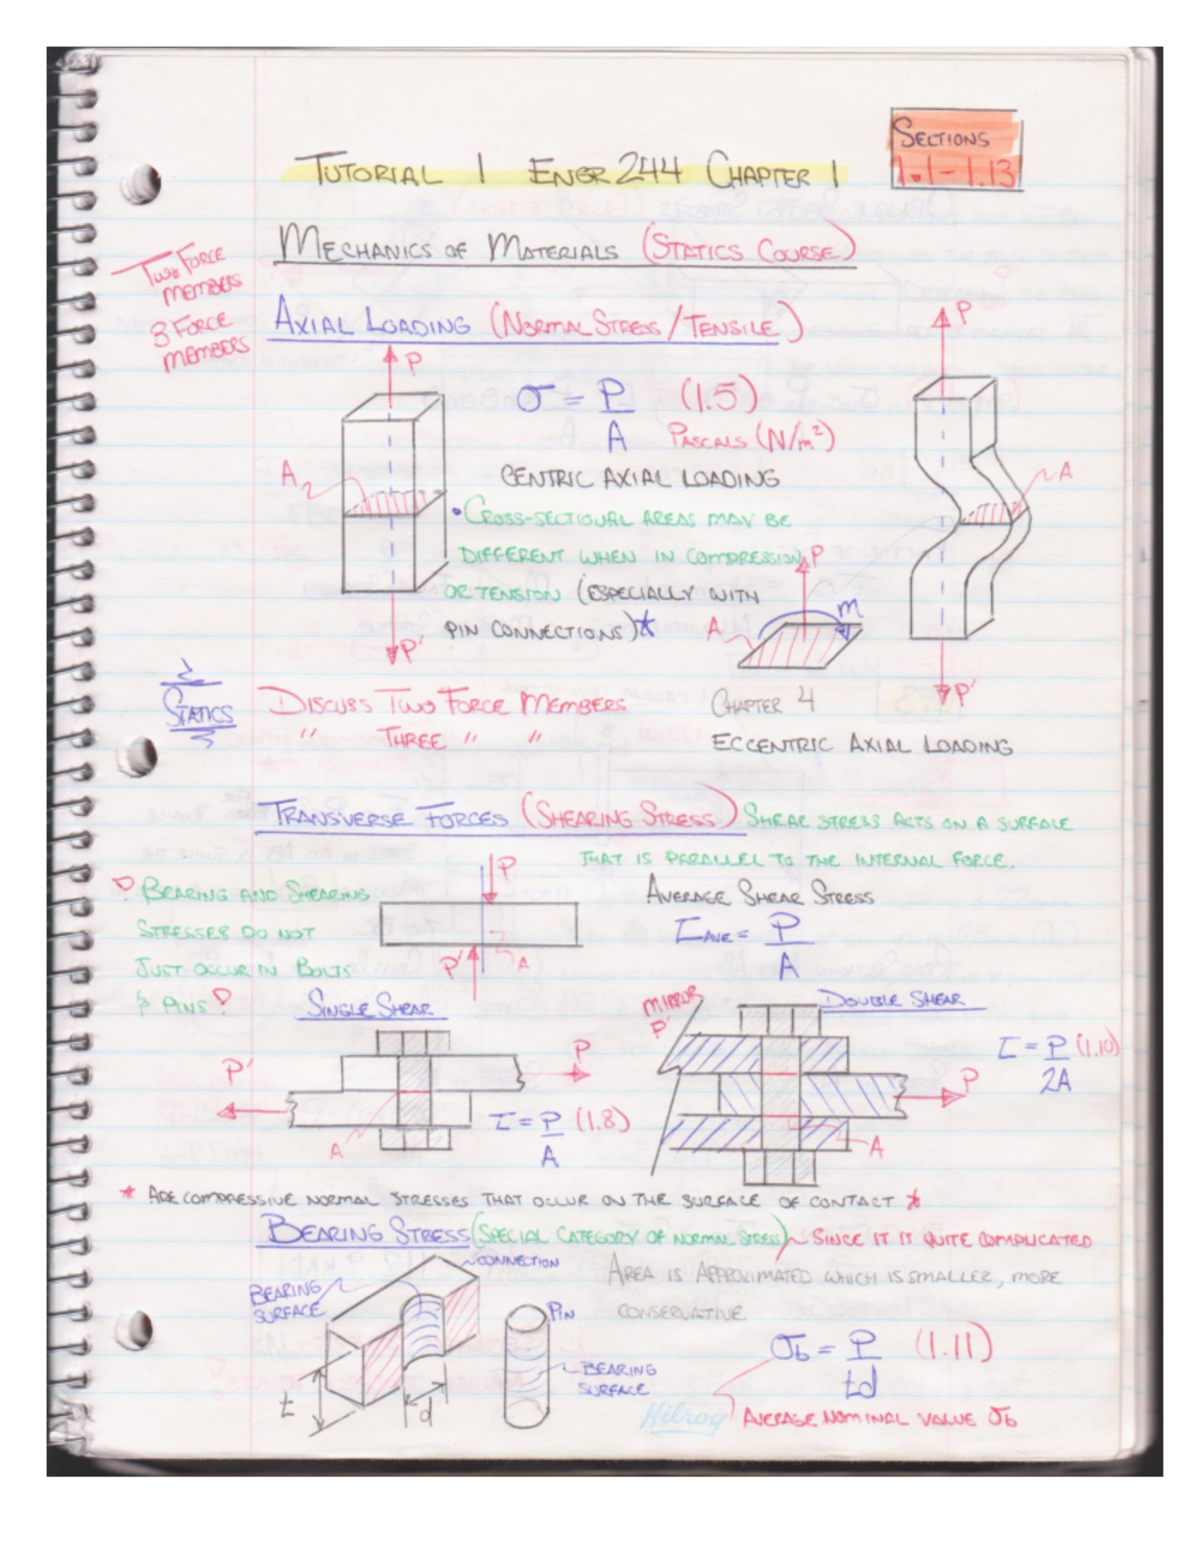 SECTIONS
1.1-1.13
TUTORIAL 1 ENGR 244 CHAPTER 1
MECHANICS OF MATERIALS (STATICS COURSE)
TWO FORCE
MEMBERS
3 FORCE
MEMBERS
AXIAL LOADING (NORMAL STRESS/TENSILE)
P
P
σ = P/A (1.5)
PASCALS (N/m²)
A
A
CENTRIC AXIAL LOADING
• CROSS-SECTIONAL AREAS MAY BE
DIFFERENT WHEN IN COMPRESSION
OR TENSION (ESPECIALLY WITH
PIN CONNECTIONS)*
P
M
A
P'
P'
STATICS
DISCUSS TWO FORCE MEMBERS
" THREE " "
CHAPTER 4
ECCENTRIC AXIAL LOADING
TRANSVERSE FORCES (SHEARING STRESS) SHEAR STRESS ACTS ON A SURFACE
THAT IS PARALLEL TO THE INTERNAL FORCE.
! BEARING AND SHEARING
STRESSES DO NOT
JUST OCCUR IN BOLTS
& PINS!
P
P'
A
AVERAGE SHEAR STRESS
τAVE = P/A
SINGLE SHEAR
P'
P
A
τ = P/A (1.8)
MIRROR
P'
DOUBLE SHEAR
P
A
τ = P/2A (1.10)
* ARE COMPRESSIVE NORMAL STRESSES THAT OCCUR ON THE SURFACE OF CONTACT *
BEARING STRESS (SPECIAL CATEGORY OF NORMAL STRESS) ~ SINCE IT IS QUITE COMPLICATED
AREA IS APPROXIMATED WHICH IS SMALLER, MORE
CONSERVATIVE
CONNECTION
BEARING
SURFACE
PIN
BEARING
SURFACE
t
d
σb = P/td (1.11)
AVERAGE NOMINAL VALUE σb
Hilroy